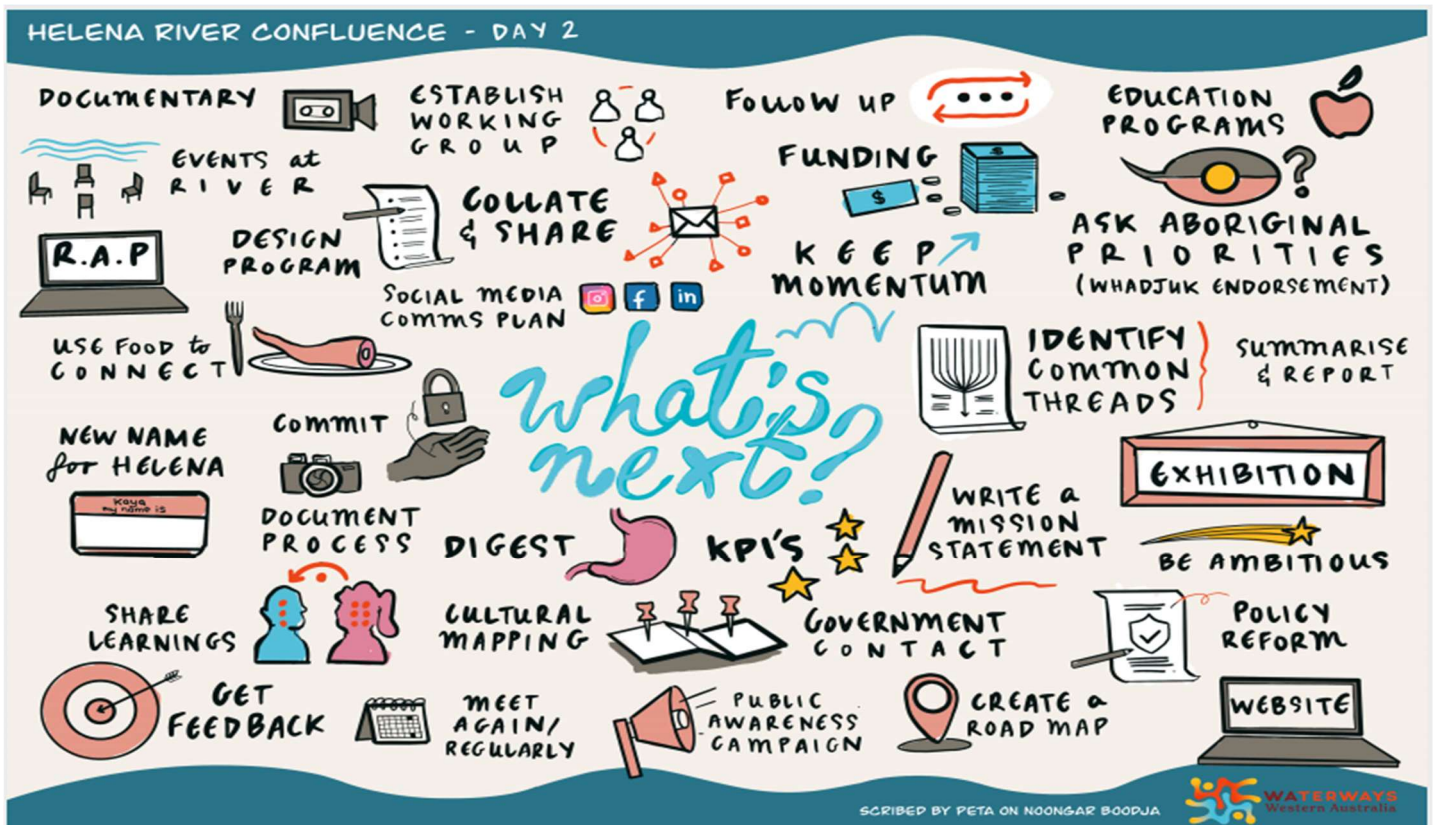 HELENA RIVER CONFLUENCE - DAY 2
DOCUMENTARY
ESTABLISH
WORKING
GROUP
FOLLOW UP
EDUCATION
PROGRAMS
EVENTS at
RIVER
FUNDING
$
$
?
R.A.P
DESIGN
PROGRAM
COLLATE
& SHARE
KEEP
MOMENTUM
ASK ABORIGINAL
PRIORITIES
(WHADJUK ENDORSEMENT)
SOCIAL MEDIA
COMMS PLAN
f
in
USE FOOD to
CONNECT
what's
next?
IDENTIFY
COMMON
THREADS
SUMMARISE
& REPORT
NEW NAME
for HELENA
Kaya
my name is
COMMIT
EXHIBITION
DOCUMENT
PROCESS
DIGEST
KPI'S
WRITE a
MISSION
STATEMENT
BE AMBITIOUS
SHARE
LEARNINGS
CULTURAL
MAPPING
GOVERNMENT
CONTACT
POLICY
REFORM
GET
FEEDBACK
MEET
AGAIN/
REGULARLY
PUBLIC
AWARENESS
CAMPAIGN
CREATE a
ROAD MAP
WEBSITE
SCRIBED BY PETA ON NOONGAR BOODJA
WATERWAYS
Western Australia